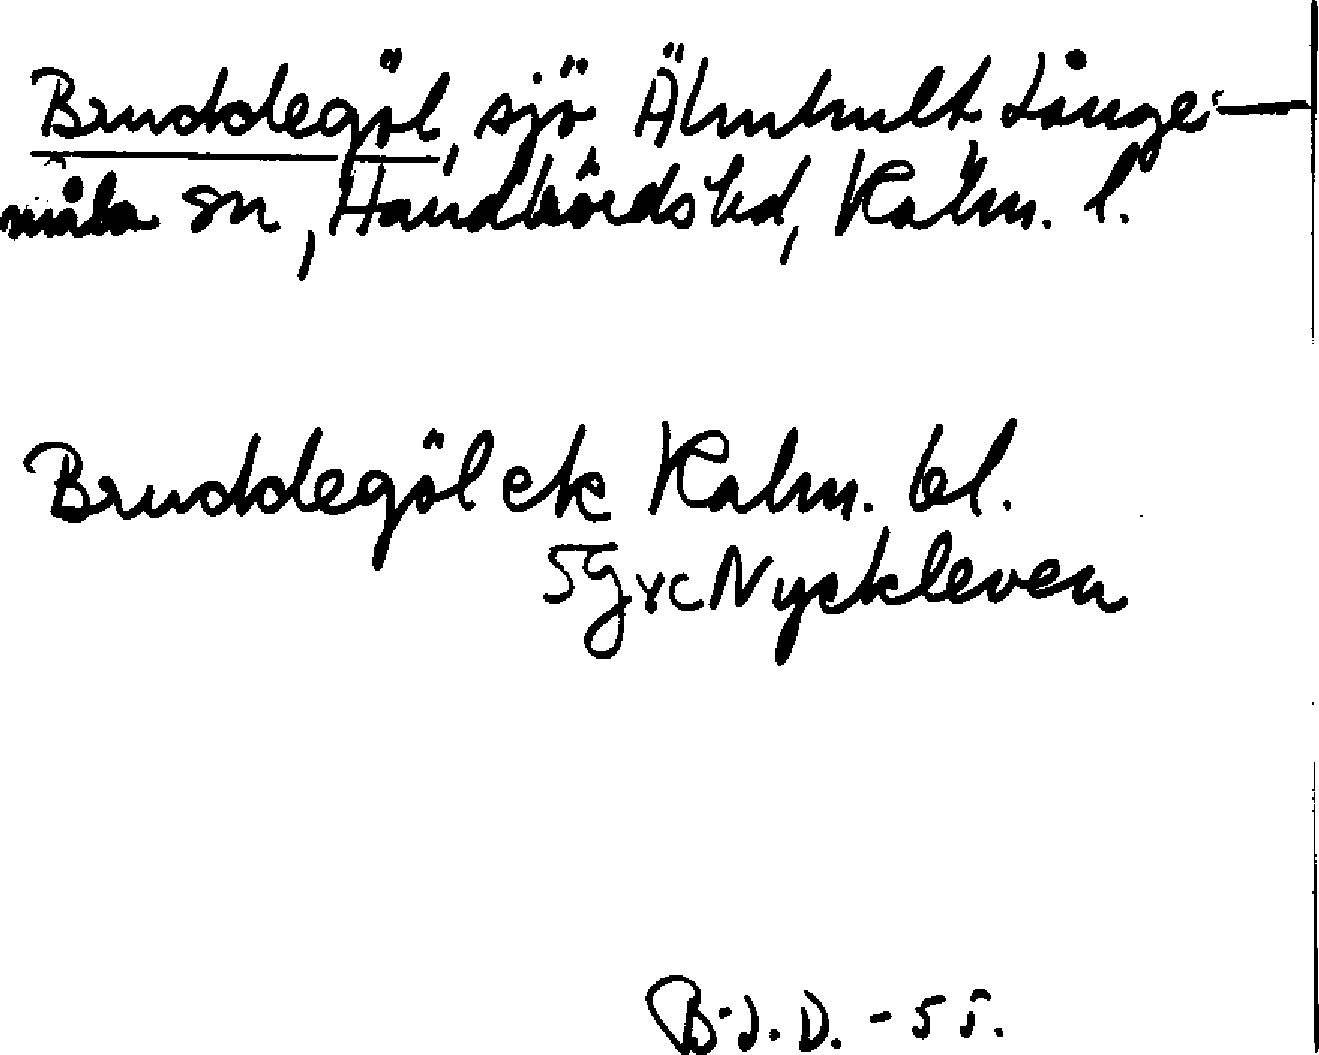 Bruddegöl, sjö Älmhult, Långe-
måla sn, Handbörds hd, Kalm. l.
Bruddegöl ek Kalm. bl.
5G yc Nyckleven
B.J.D. - 55.